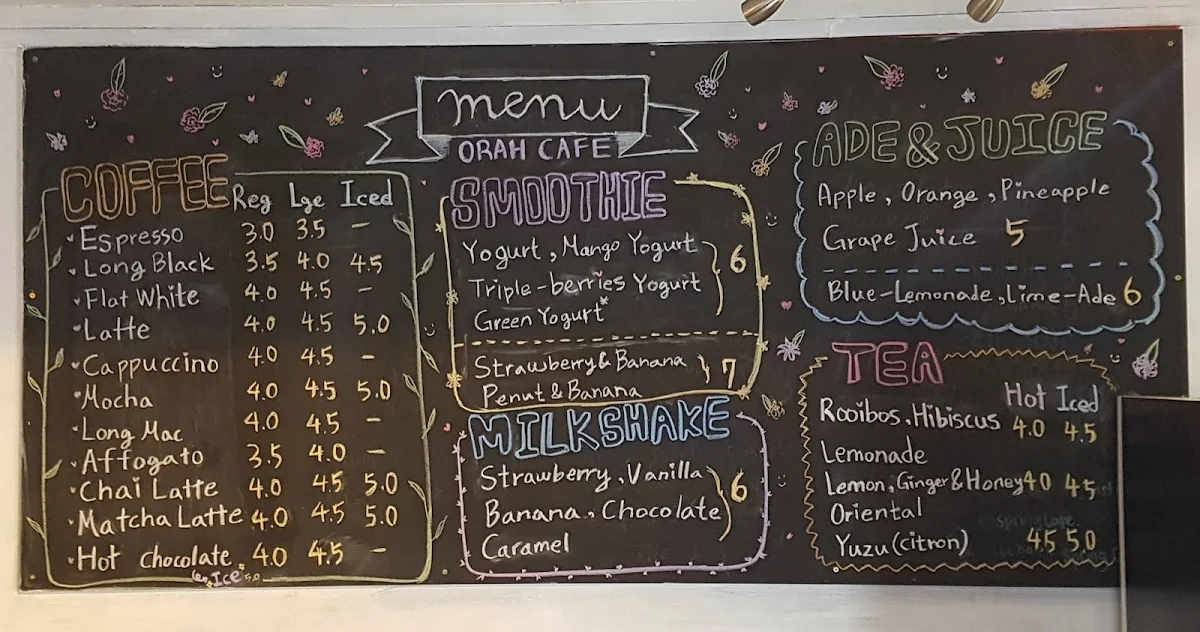 menu
ORAH CAFE
COFFEE Reg Lge Iced
Espresso 3.0 3.5 -
Long Black 3.5 4.0 4.5
Flat White 4.0 4.5 -
Latte 4.0 4.5 5.0
Cappuccino 4.0 4.5 -
Mocha 4.0 4.5 5.0
Long Mac 4.0 4.5 -
Affogato 3.5 4.0 -
Chai Latte 4.0 4.5 5.0
Matcha Latte 4.0 4.5 5.0
Hot chocolate 4.0 4.5 -
Ice 5.0
SMOOTHIE
Yogurt, Mango Yogurt
Triple-berries Yogurt 6
Green Yogurt*
Strawberry & Banana
Penut & Banana 7
MILKSHAKE
Strawberry, Vanilla
Banana, Chocolate 6
Caramel
ADE & JUICE
Apple, Orange, Pineapple
Grape Juice 5
Blue-Lemonade, Lime-Ade 6
TEA
Hot Iced
Rooibos, Hibiscus 4.0 4.5
Lemonade
Lemon, Ginger & Honey 4.0 4.5
Oriental
Yuzu (citron) 4.5 5.0